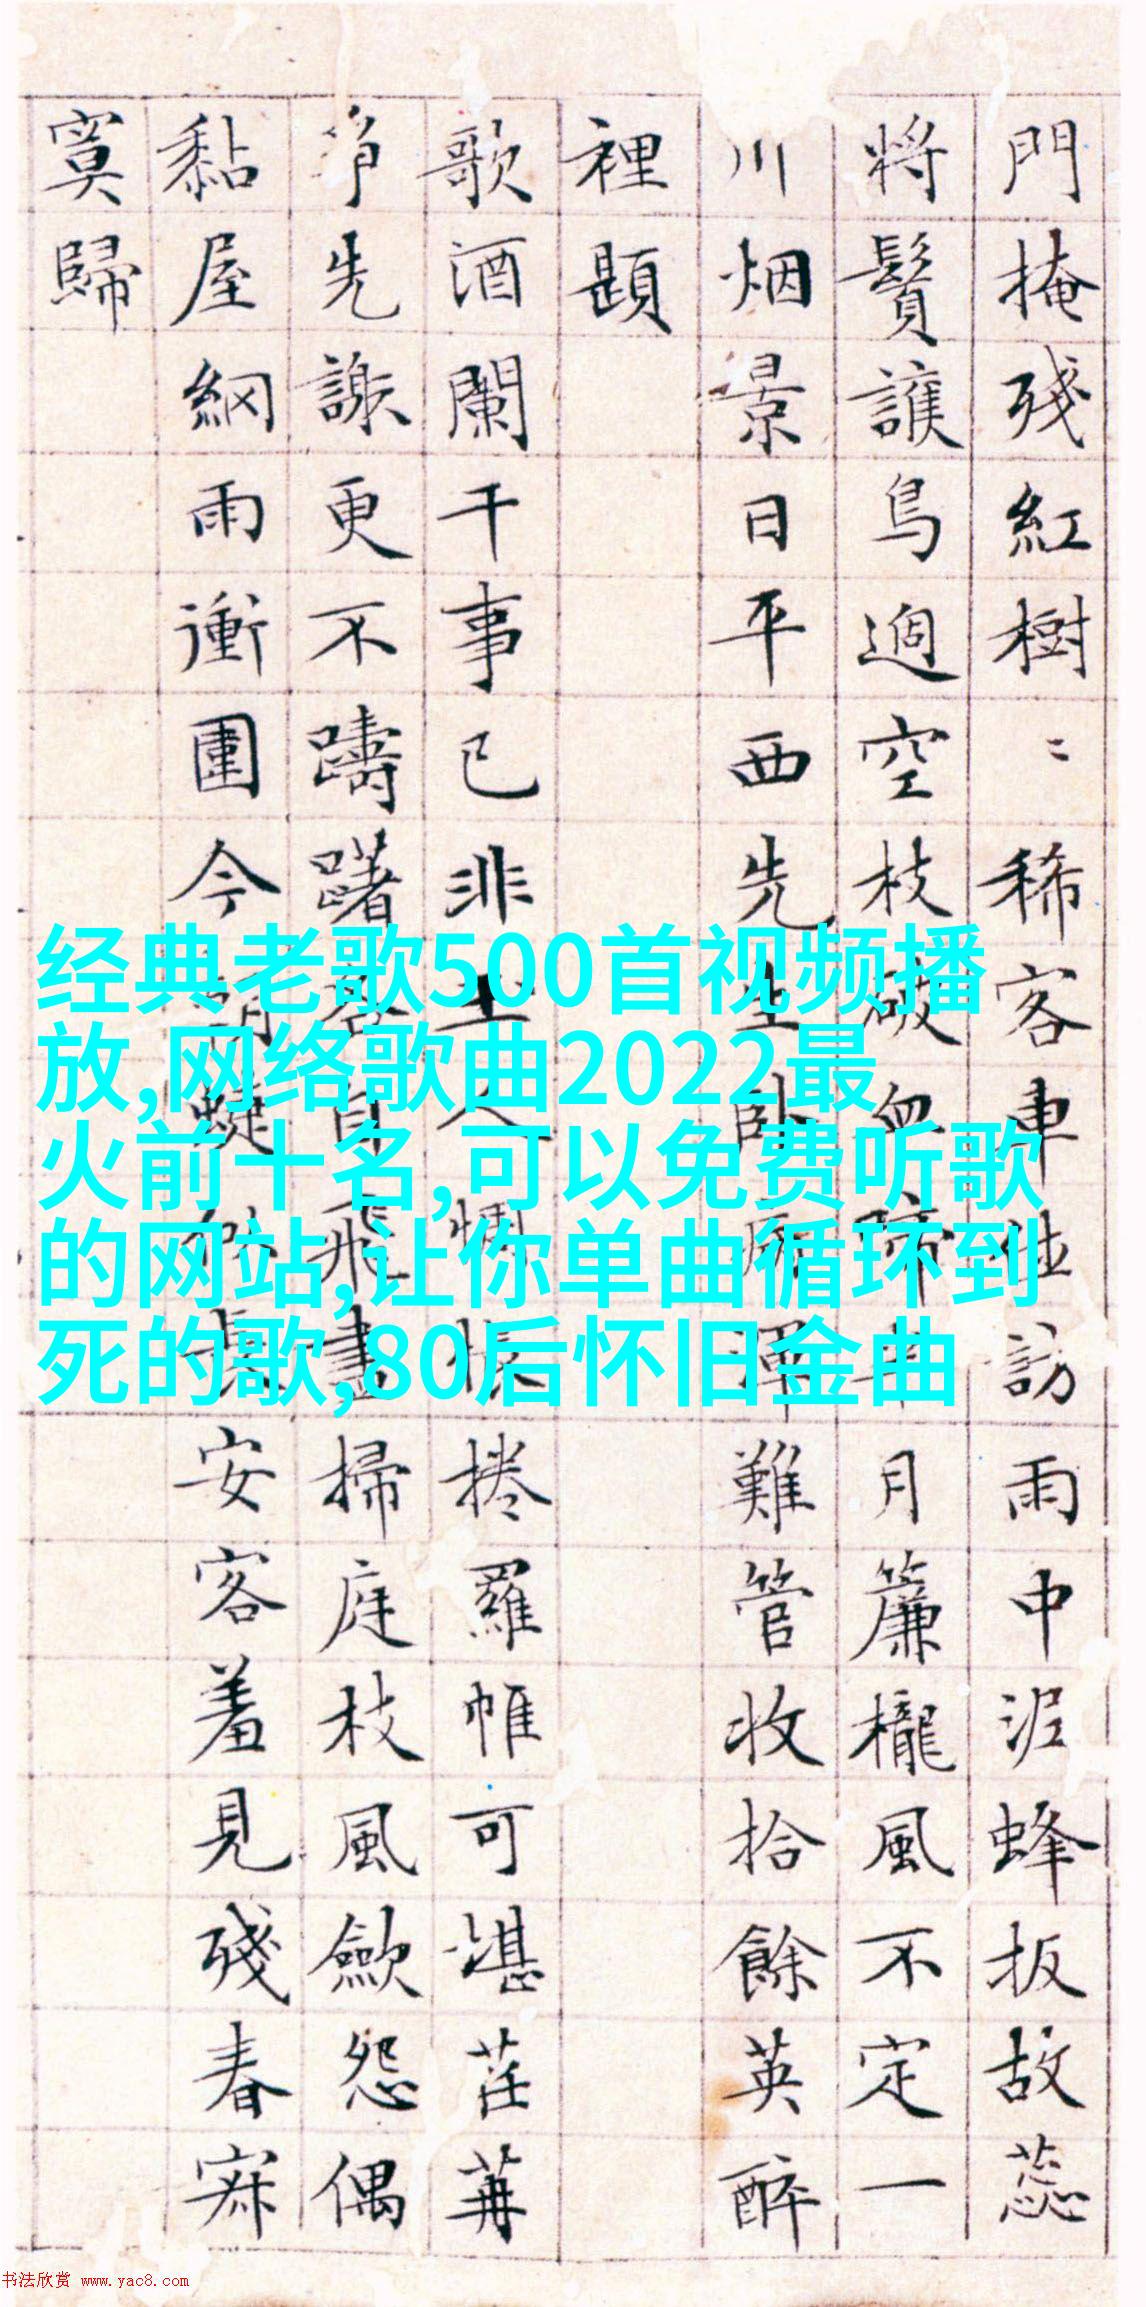 門掩殘紅樹〻稀客車訪雨中泥蜂扳故蕊
將鬢護鳥過空枝破血啼半月簾櫳風不定一
川烟景日平西先生卧渾難管收拾餘英醉
裡題
歌酒闌干事已非士人惆悵捲羅帷可堪荏苒
爭先謝更不躊躇各自飛盡掃庭枝風歛怨偶
黏屋網雨衝圍今安客羞見殘春寂
寞歸
经典老歌500首视频播
放,网络歌曲2022最
火前十名,可以免费听歌
的网站,让你单曲循环到
死的歌,80后怀旧金曲
书法欣赏 www.yac8.com